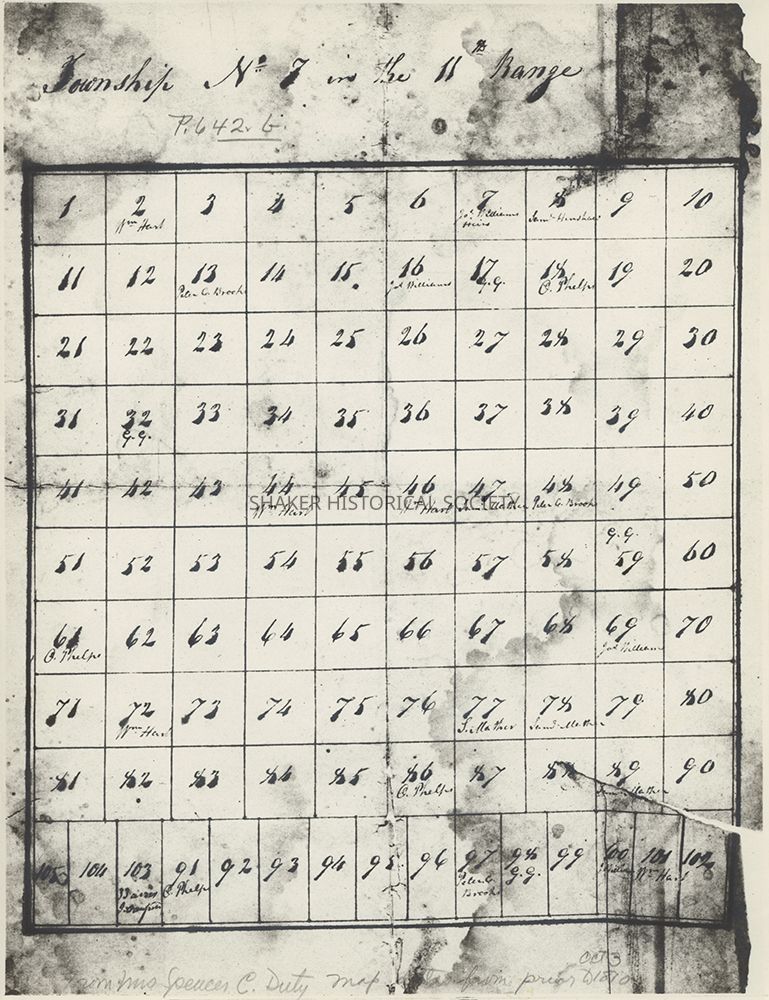 Township No 7 in the 11th Range
P. 642. G.
1 2 3 4 5 6 7 8 9 10
Wm Hart Jos Williams Saml Henshaw
11 12 13 14 15. 16 17 18 19 20
Peter C. Brooks Jos Williams G.G. O. Phelps
21 22 23 24 25 26 27 28 29 30
31 32 33 34 35 36 37 38 39 40
G.G.
41 42 43 44 45 46 47 48 49 50
SHAKER HISTORICAL SOCIETY
Wm Hart Wm Hart Saml Mather Peter C. Brooks
G.G.
51 52 53 54 55 56 57 58 59 60
61 62 63 64 65 66 67 68 69 70
O. Phelps Jos Williams
71 72 73 74 75 76 77 78 79 80
Wm Hart S. Mather Saml Mather
81 82 83 84 85 86 87 88 89 90
O. Phelps Saml Mather
105 104 103 91 92 93 94 95 96 97 98 99 100 101 102
O. Phelps Peter C. Brooks G.G. Williams Wm Hart
OCT 3
From Mrs Spencer C. Duty map from prior 1810